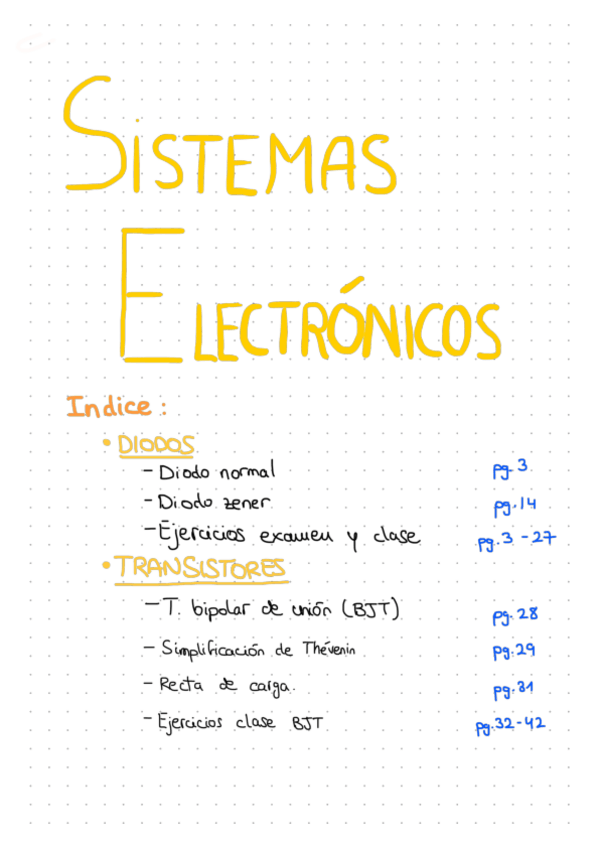 SISTEMAS
ELECTRÓNICOS
Indice:
• DIODOS
- Diodo normal pg.3
- Diodo zener pg.14
- Ejercicios examen y clase pg.3-27
• TRANSISTORES
- T. bipolar de unión (BJT) pg.28
- Simplificación de Thévenin pg.29
- Recta de carga. pg.31
- Ejercicios clase BJT pg.32-42